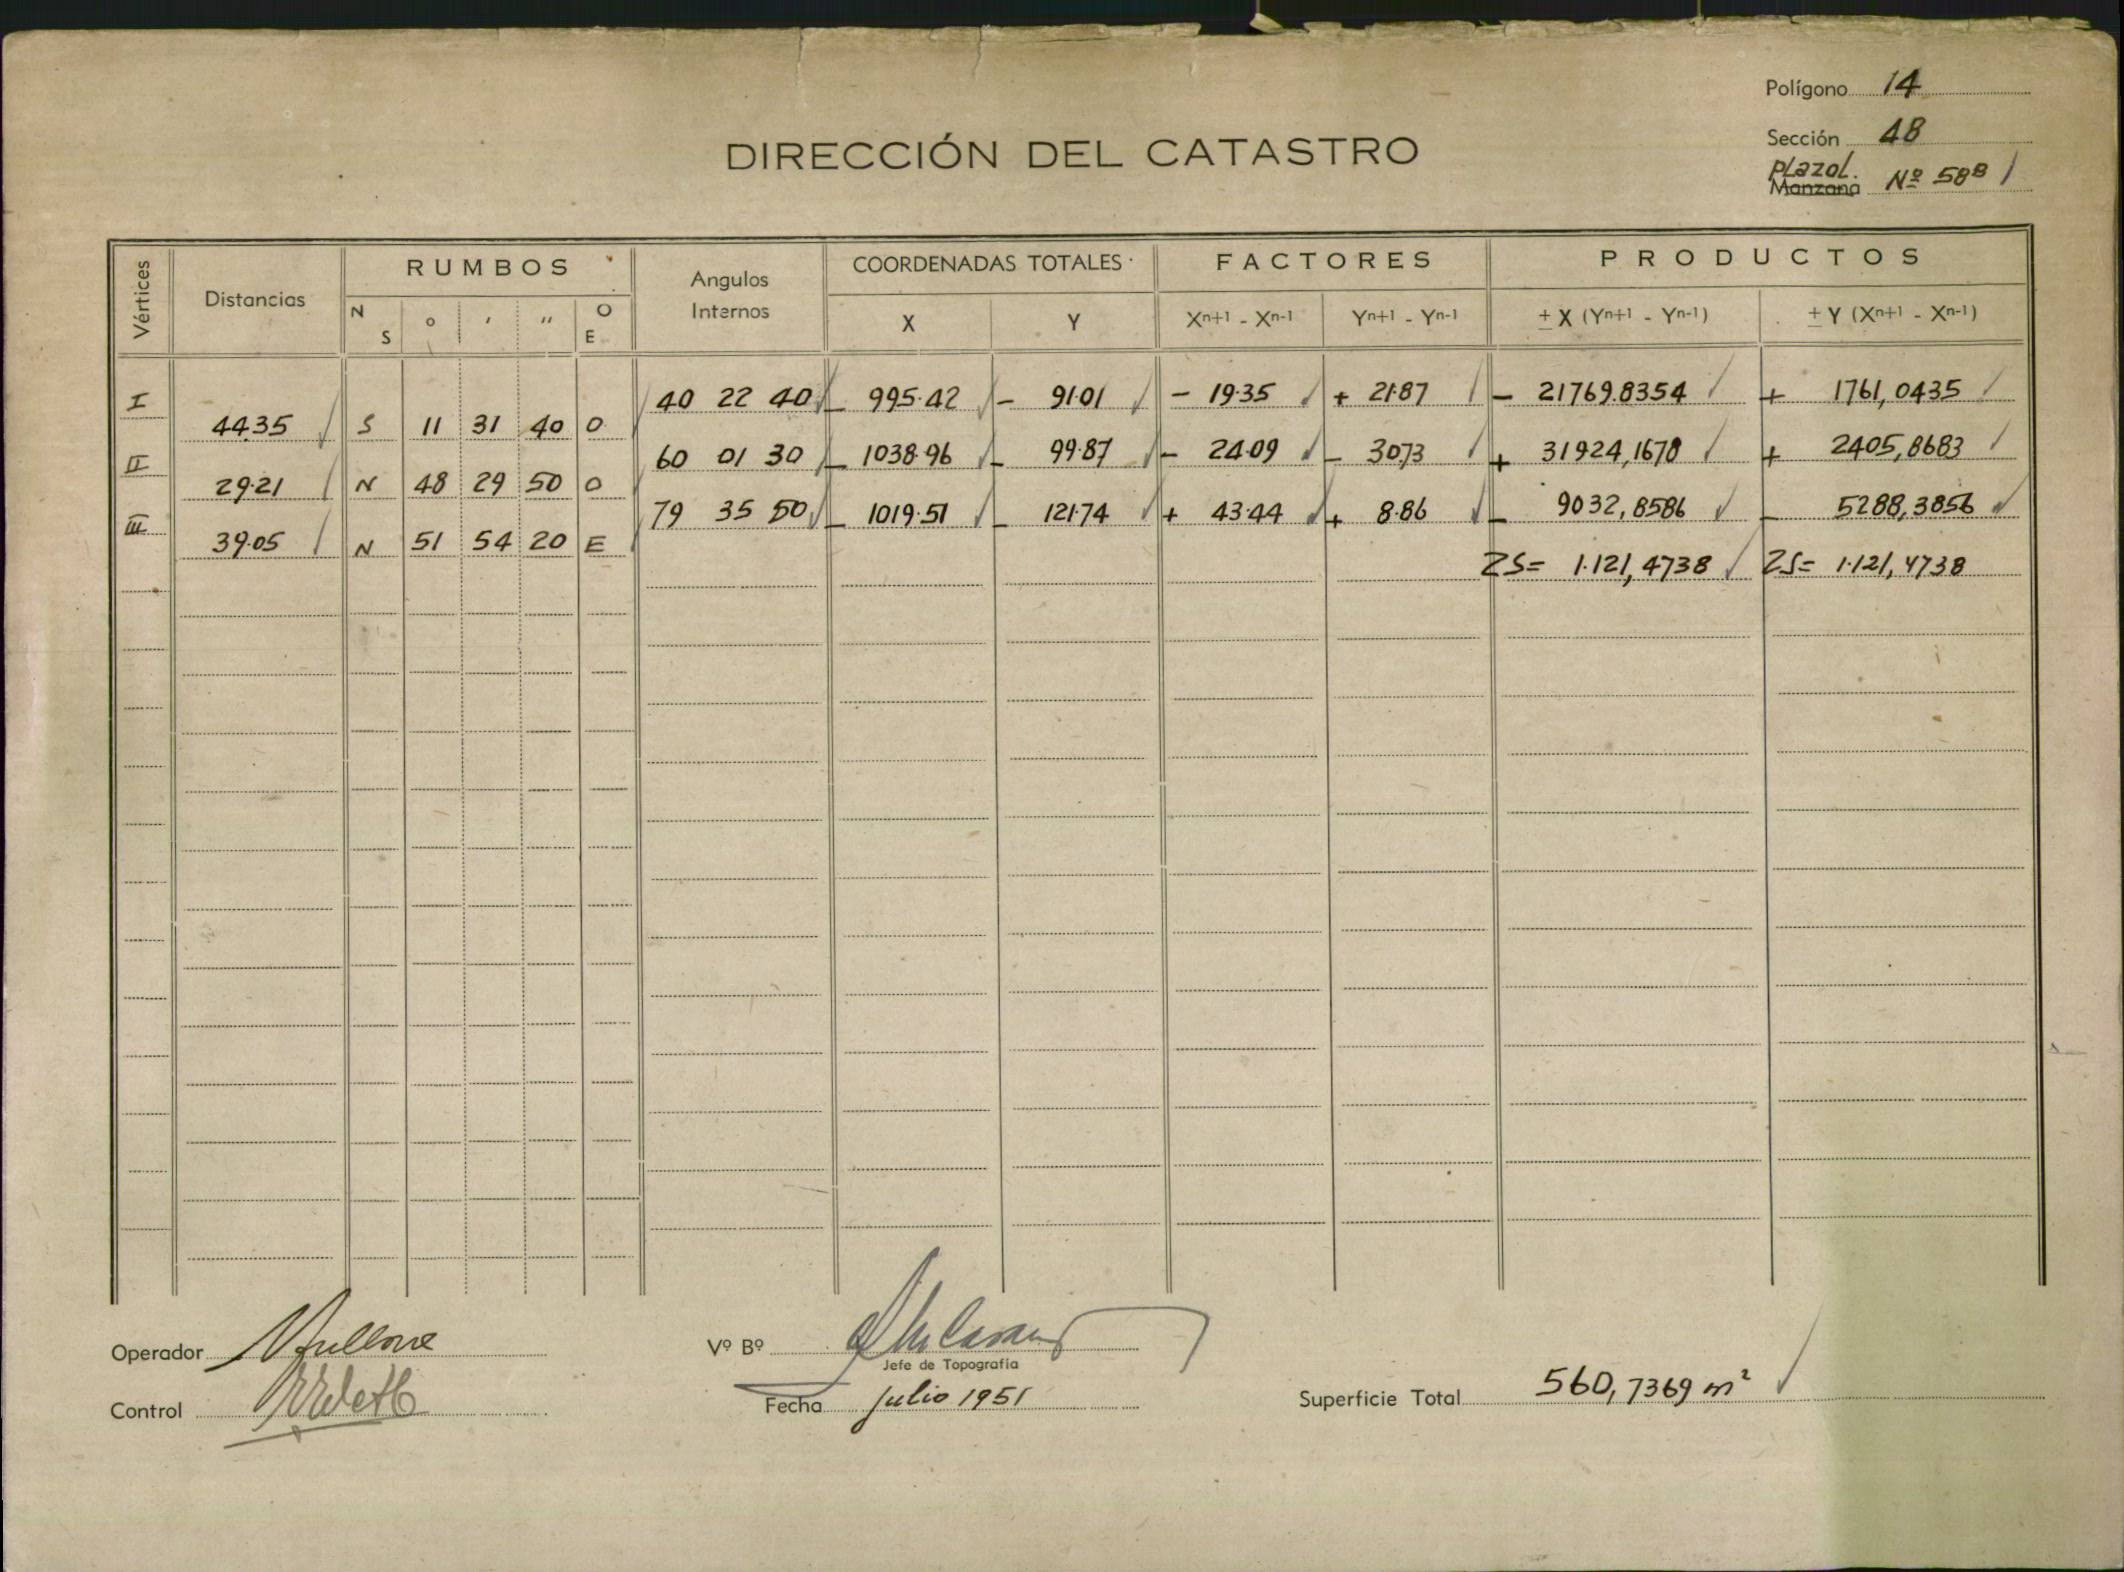 Polígono 14
DIRECCIÓN DEL CATASTRO
Sección 48
Plazol.
Manzana Nº 58B
Vértices Distancias RUMBOS Angulos Internos COORDENADAS TOTALES FACTORES PRODUCTOS
N S ° ' " O E X Y Xn+1 - Xn-1 Yn+1 - Yn-1 ± X (Yn+1 - Yn-1) ± Y (Xn+1 - Xn-1)
I 40 22 40 - 995.42 - 91.01 - 19.35 + 21.87 - 21769.8354 + 1761,0435
44.35 S 11 31 40 O
II 60 01 30 - 1038.96 - 99.87 - 24.09 - 30.73 + 31924,1678 + 2405,8683
29.21 N 48 29 50 O
III 79 35 50 - 1019.51 - 121.74 + 43.44 + 8.86 - 9032,8586 - 5288,3856
39.05 N 51 54 20 E
2S= 1.121,4738 2S= 1.121,4738
Operador
Vº Bº
Jefe de Topografía
Control
Fecha Julio 1951
Superficie Total 560,7369 m²